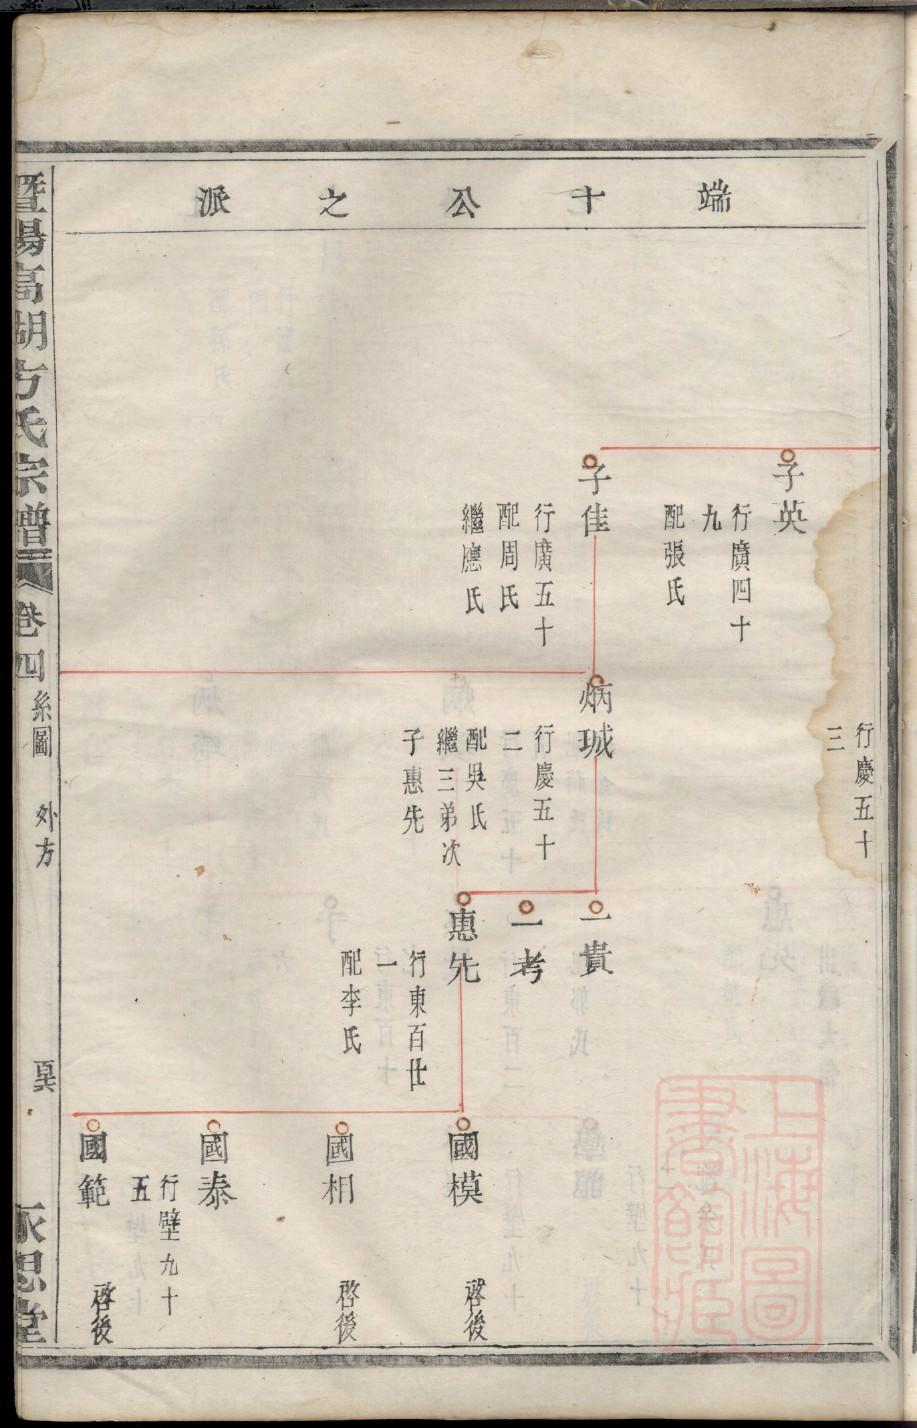 端十公之派
子英
行廣四十
九
配張氏
子佳
行廣五十
配周氏
繼應氏
行慶五十
三
炳珹
行慶五十
二
配吳氏
繼三弟次
子惠先
一貴
一考
惠先
行東百廿
一
配李氏
國模
啓後
國相
啓後
國泰
行壁九十
五
國範
啓後
暨陽高湖方氏宗譜
卷四
系圖
外方
永思堂
上海圖書館藏